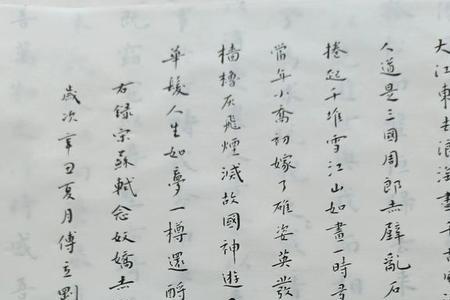 大江東去浪淘盡千古
人道是三國周郎赤壁亂石
捲起千堆雪江山如畫一時多
當年小喬初嫁了雄姿英發
檣櫓灰飛煙滅故國神遊
華髮人生如夢一樽還酹
右錄宋蘇軾念奴嬌赤
歲次辛丑夏月傅立